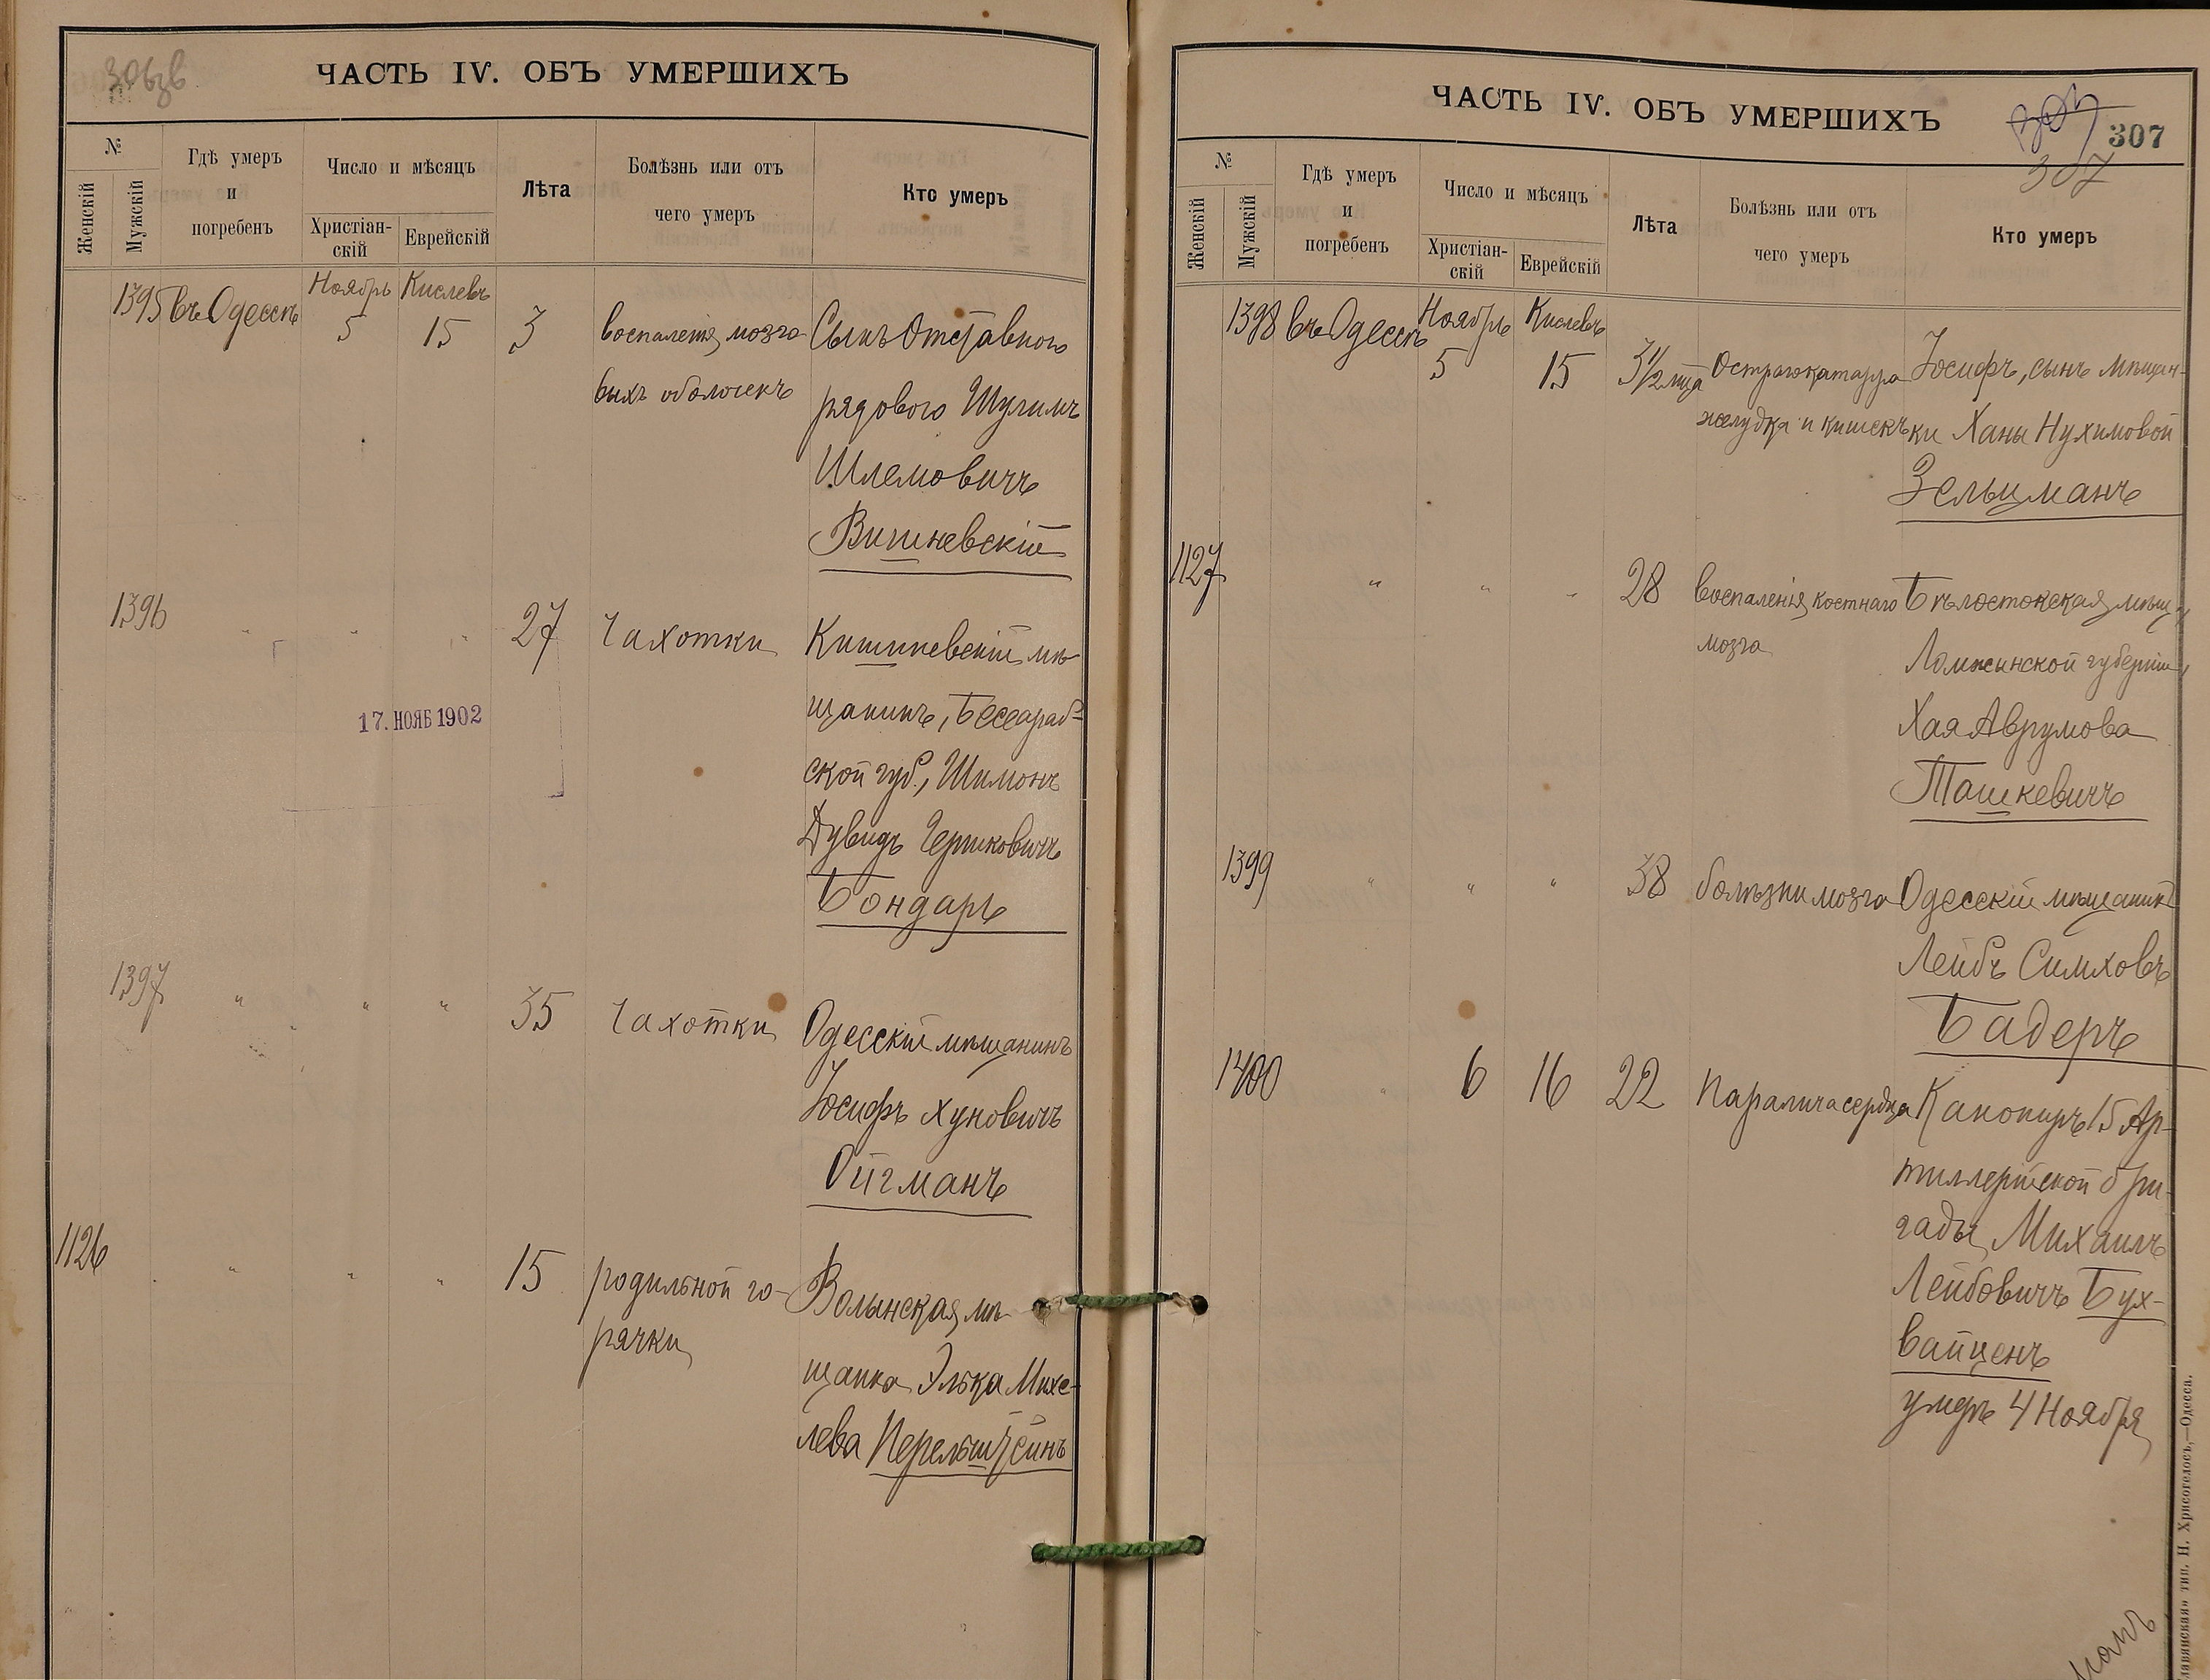 306 об
ЧАСТЬ IV. ОБЪ УМЕРШИХЪ
№
Женскій
Мужскій
Гдѣ умеръ
и
погребенъ
Число и мѣсяцъ
Христіан-
скій
Еврейскій
Лѣта
Болѣзнь или отъ
чего умеръ
Кто умеръ
Ноябрь Кислевъ
1395 въ Одессѣ 5 15 3 воспаленія мозго- Сынъ Отставного
выхъ оболочекъ рядового Шулимъ
Шлемовичъ
Вишневскій
1396 " " " 27 Чахотки Кишиневскій мѣ-
щанинъ, Бессараб-
ской губ., Шимонъ
Дувидъ Гершковичъ
Бондарь
17. НОЯБ 1902
1397 " " " 35 Чахотки Одесскій мѣщанинъ
Іосифъ Хуновичъ
Ойгманъ
1126 " " " 15 родильной го- Волынская мѣ-
рячки щанка Элька Михе-
лева Перельштейнъ
ЧАСТЬ IV. ОБЪ УМЕРШИХЪ
307
307
№
Женскій
Мужскій
Гдѣ умеръ
и
погребенъ
Число и мѣсяцъ
Христіан-
скій
Еврейскій
Лѣта
Болѣзнь или отъ
чего умеръ
Кто умеръ
Ноябрь Кислевъ
1398 въ Одессѣ 5 15 3 1/2 мца Остраго катарра Іосифъ, сынъ мѣщан-
желудка и кишекъ ки Ханы Нухимовой
Зельцманъ
1127 " " " 28 воспаленія костнаго Бѣлостокская мѣщ.,
мозга Ломжинской губерніи,
Хая Аврумова
Ташкевичъ
1399 " " " 38 болѣзни мозга Одесскій мѣщанинъ
Лейбъ Симховъ
Бадеръ
1400 " 6 16 22 Паралича сердца Канониръ 15 Ар-
тиллерійской бри-
гады Михаилъ
Лейбовичъ Бух-
вайценъ
умеръ 4 Ноября
тип. Н. Хрисогелосъ,—Одесса.